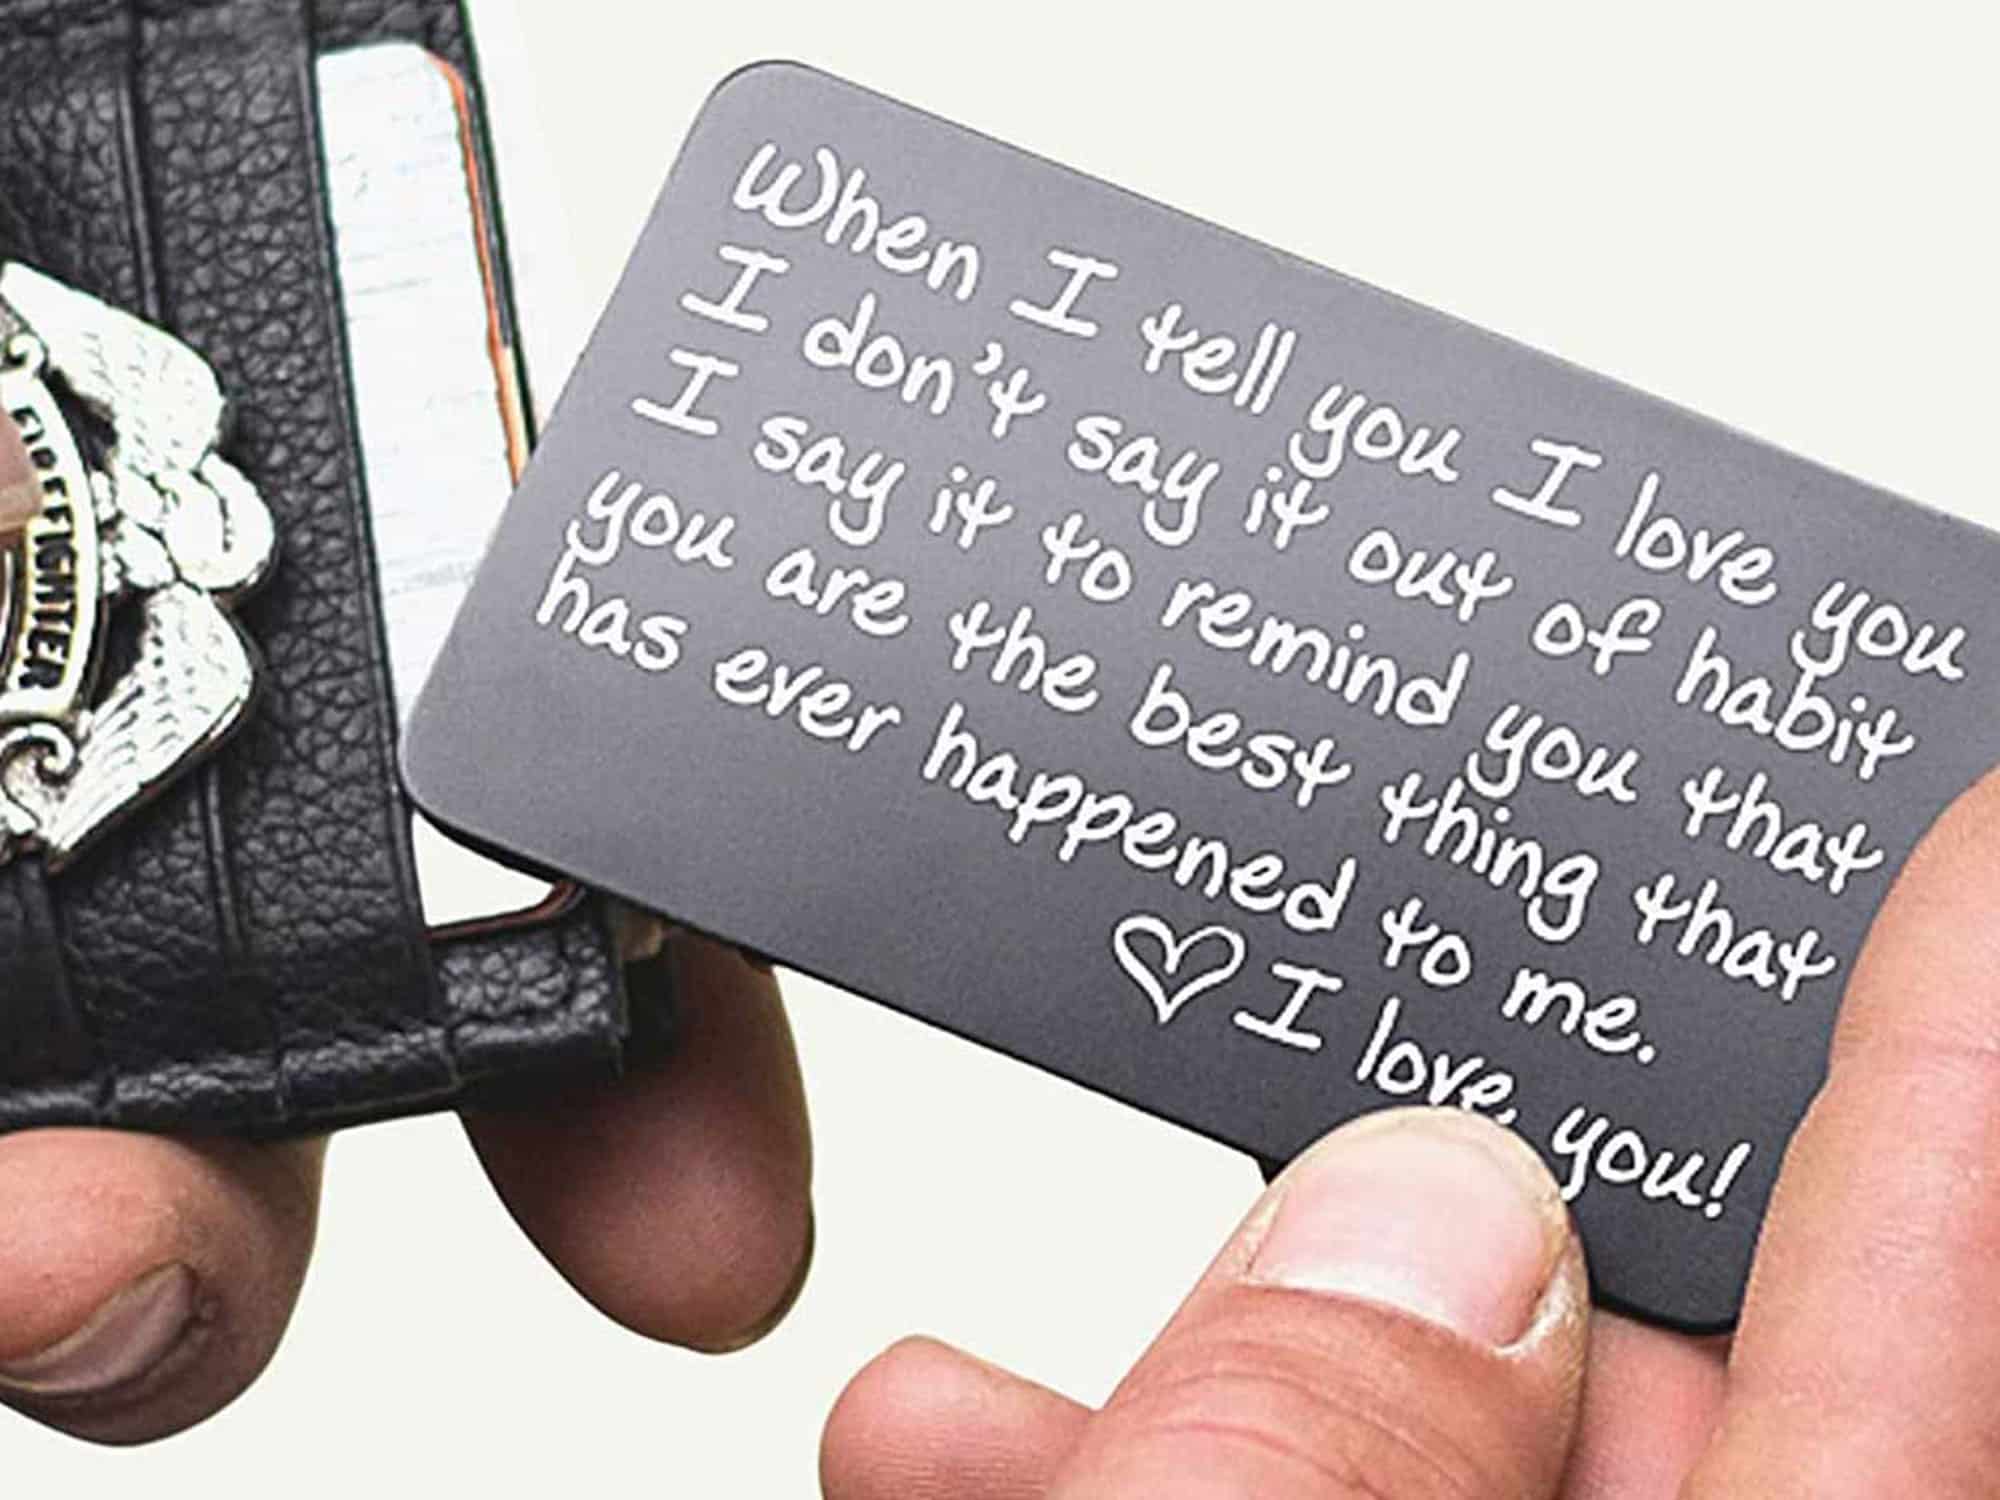 When I tell you I love you
I don't say it out of habit
I say it to remind you that
you are the best thing that
has ever happened to me.
♡ I love you!
FIREFIGHTER